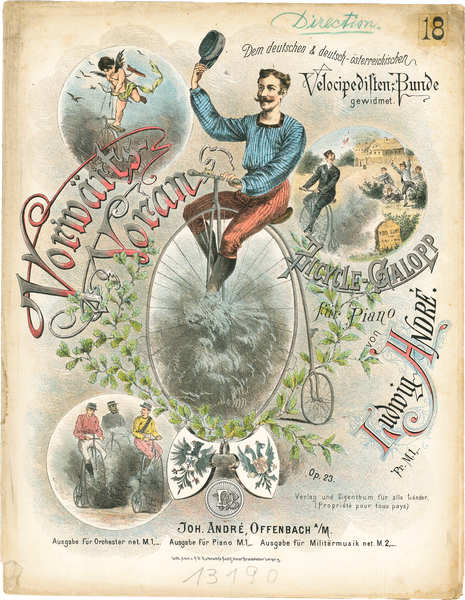 Direction.
18
Dem deutschen & deutsch-österreichischen
Velocipedisten-Bunde
gewidmet.
Vorwärts
Voran
Bicycle-Galopp
für Piano
von
Ludwig André.
Pr. M 1.
Op. 23.
Verlag und Eigenthum für alle Länder.
(Propriété pour tous pays)
Joh. André, Offenbach a/M.
Ausgabe für Orchester net. M. 1,_. Ausgabe für Piano M. 1,_. Ausgabe für Militärmusik net. M. 2,_.
13190